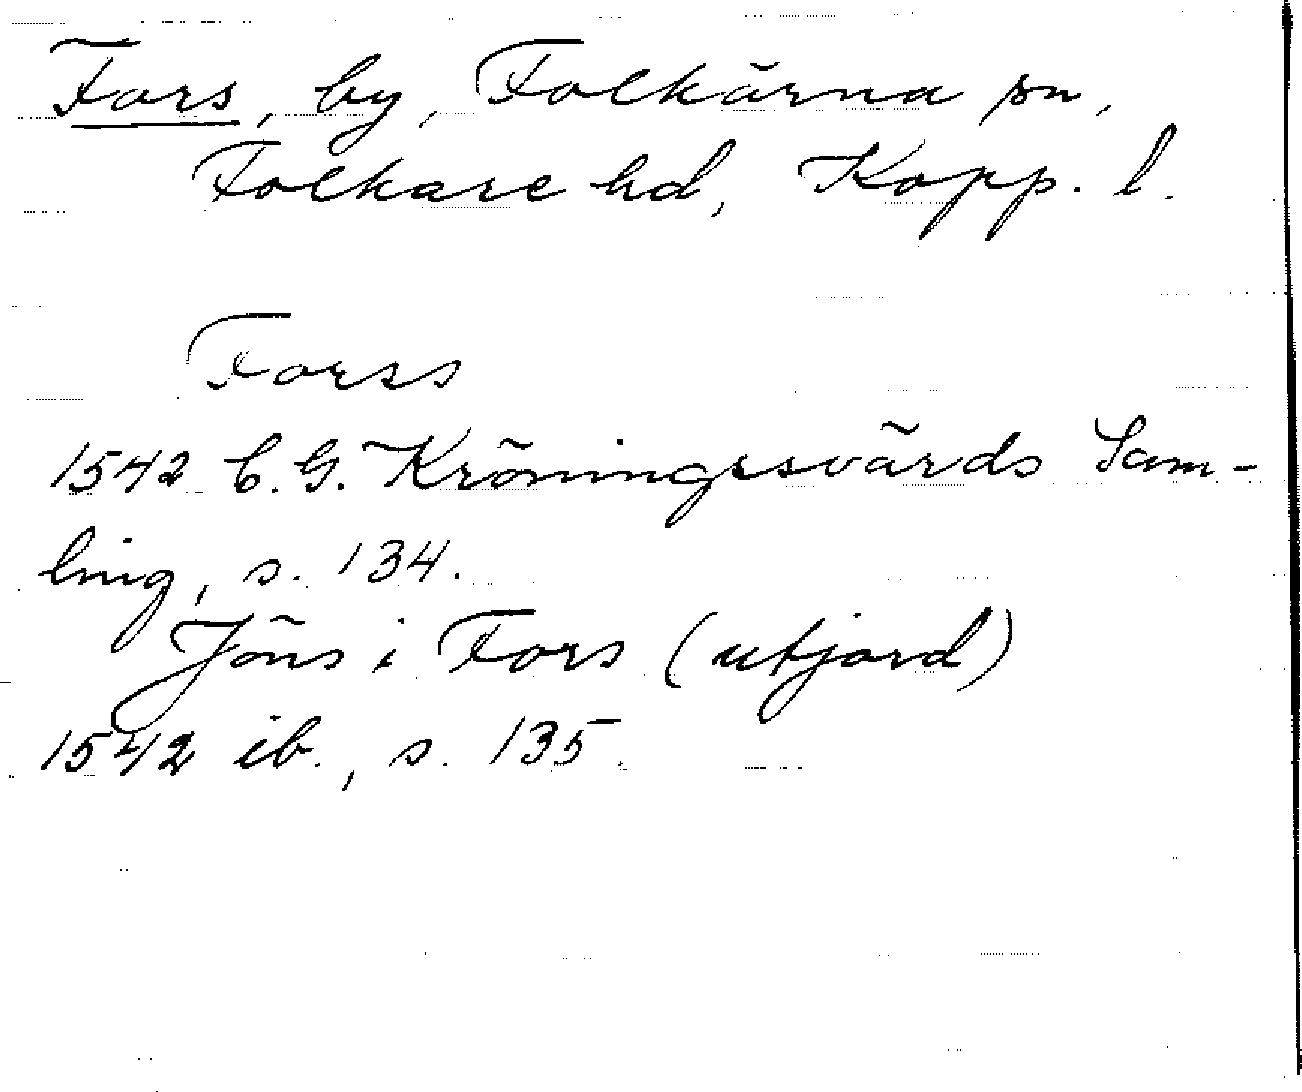 Fors, by, Folkärna sn,
Folkare hd, Kopp. l.
Forss
1542 C.G. Kröningssvärds Sam-
ling, s. 134.
Jöns i Fors (utjord)
1542 ib., s. 135.